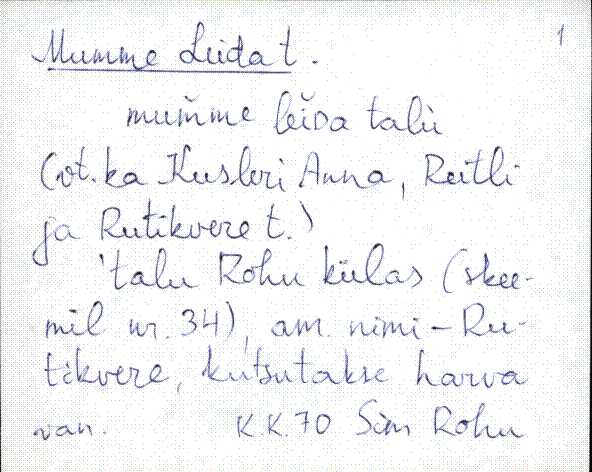 1
Mumme Leida t.
mum̆me lĕiᴅa talù
(vt. ka Kusleri Anna, Reitli
ja Rutikvere t.)
'talu Rohu külas (skee-
mil nr. 34), am. nimi – Ru-
tikvere, kutsutakse harva
van. K.K. 70 Sim Rohu